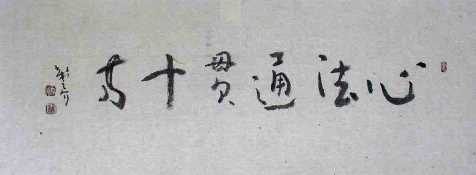 心法通貫十方